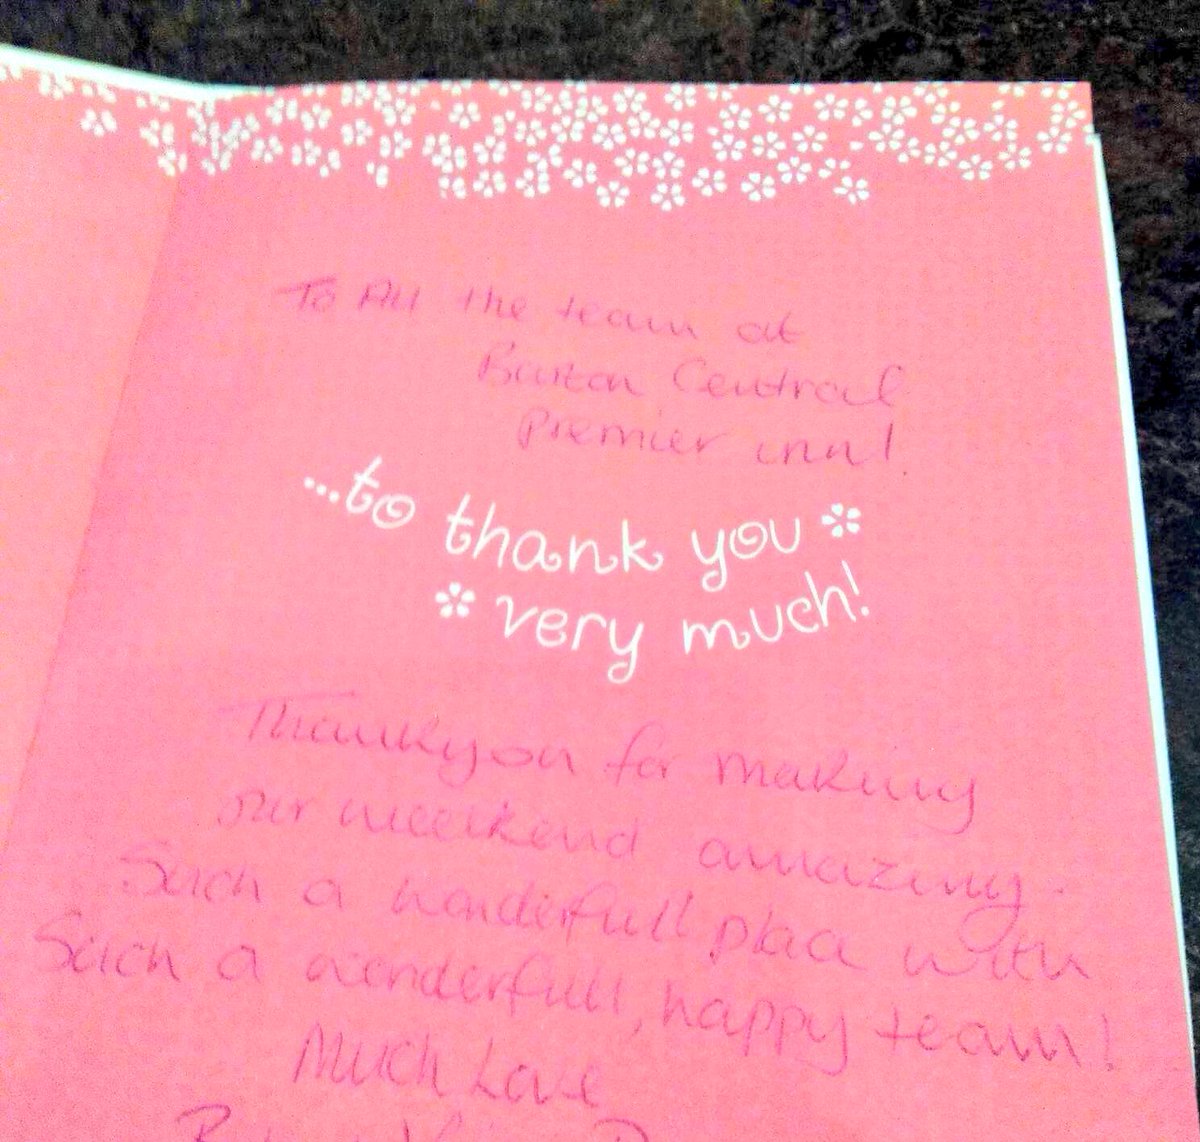 To All the team at
Burton Central
Premier inn!
...to thank you
very much!
Thankyou for making
our weekend amazing.
Such a wonderfull place with
Such a wonderfull, happy team!
Much Love